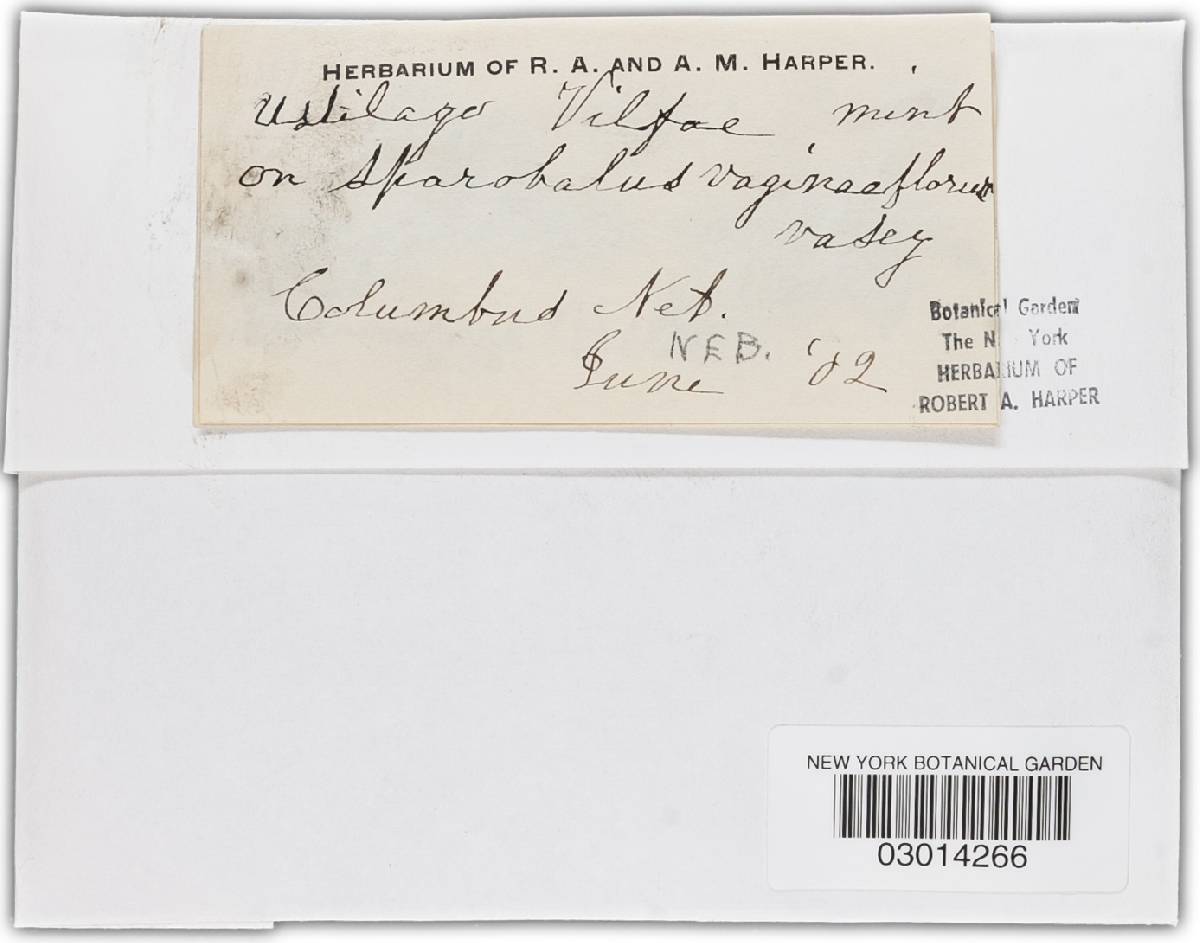 HERBARIUM OF R. A. AND A. M. HARPER.
Ustilago Vilfae wint
on Sparobalus vaginaeflorus
vasey
Columbus Neb.
NEB.
June '02
Botanical Garden
The N York
HERBARIUM OF
ROBERT A. HARPER
NEW YORK BOTANICAL GARDEN
03014266